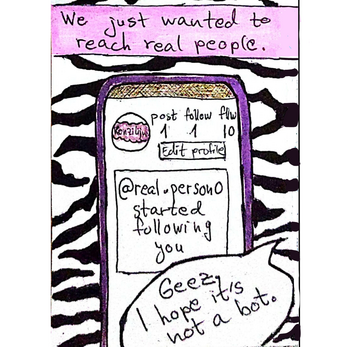 We just wanted to
reach real people.
post follow flw
1 1 10
Edit profile
@real.person0
started
following
you
Geez,
I hope it's
not a bot.